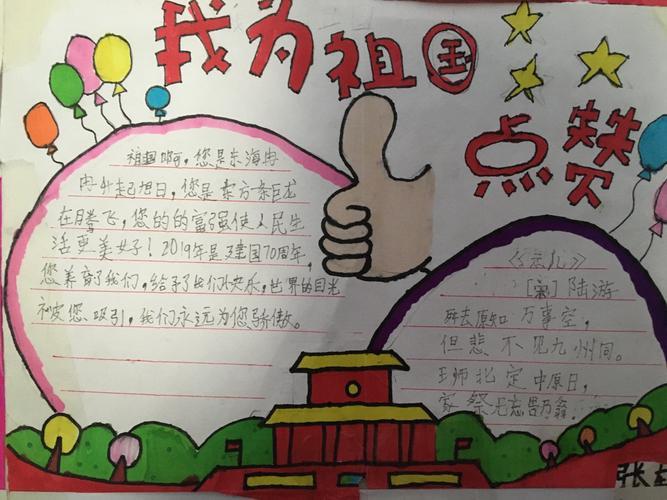 我为祖国
点赞
祖国啊，您是东海冉
冉升起旭日，您是东方条巨龙
在腾飞，您的的富强使人民生
活更美好！2019年是建国70周年，
您养育了我们，给予了我们快乐，世界的目光
被您吸引，我们永远为您骄傲。
《示儿》
[宋] 陆游
死去原知万事空，
但悲不见九州同。
王师北定中原日，
家祭无忘告乃翁
张